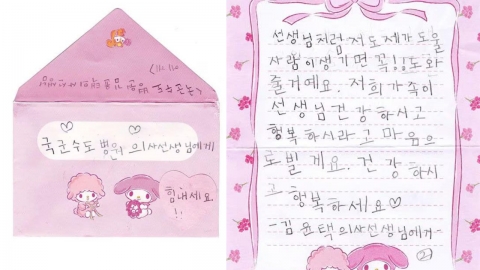 국군수도 병원 의사선생님에게
힘내세요
!!
선생님처럼 저도 제가 도울
사람이 생기면 꼭!! 도와
줄거예요. 저희가족이
선생님 건강하시고
행복하시라고 마음으
로 빌게요. 건강하시
고 행복하세요♡
-김윤택의사선생님에게-
2